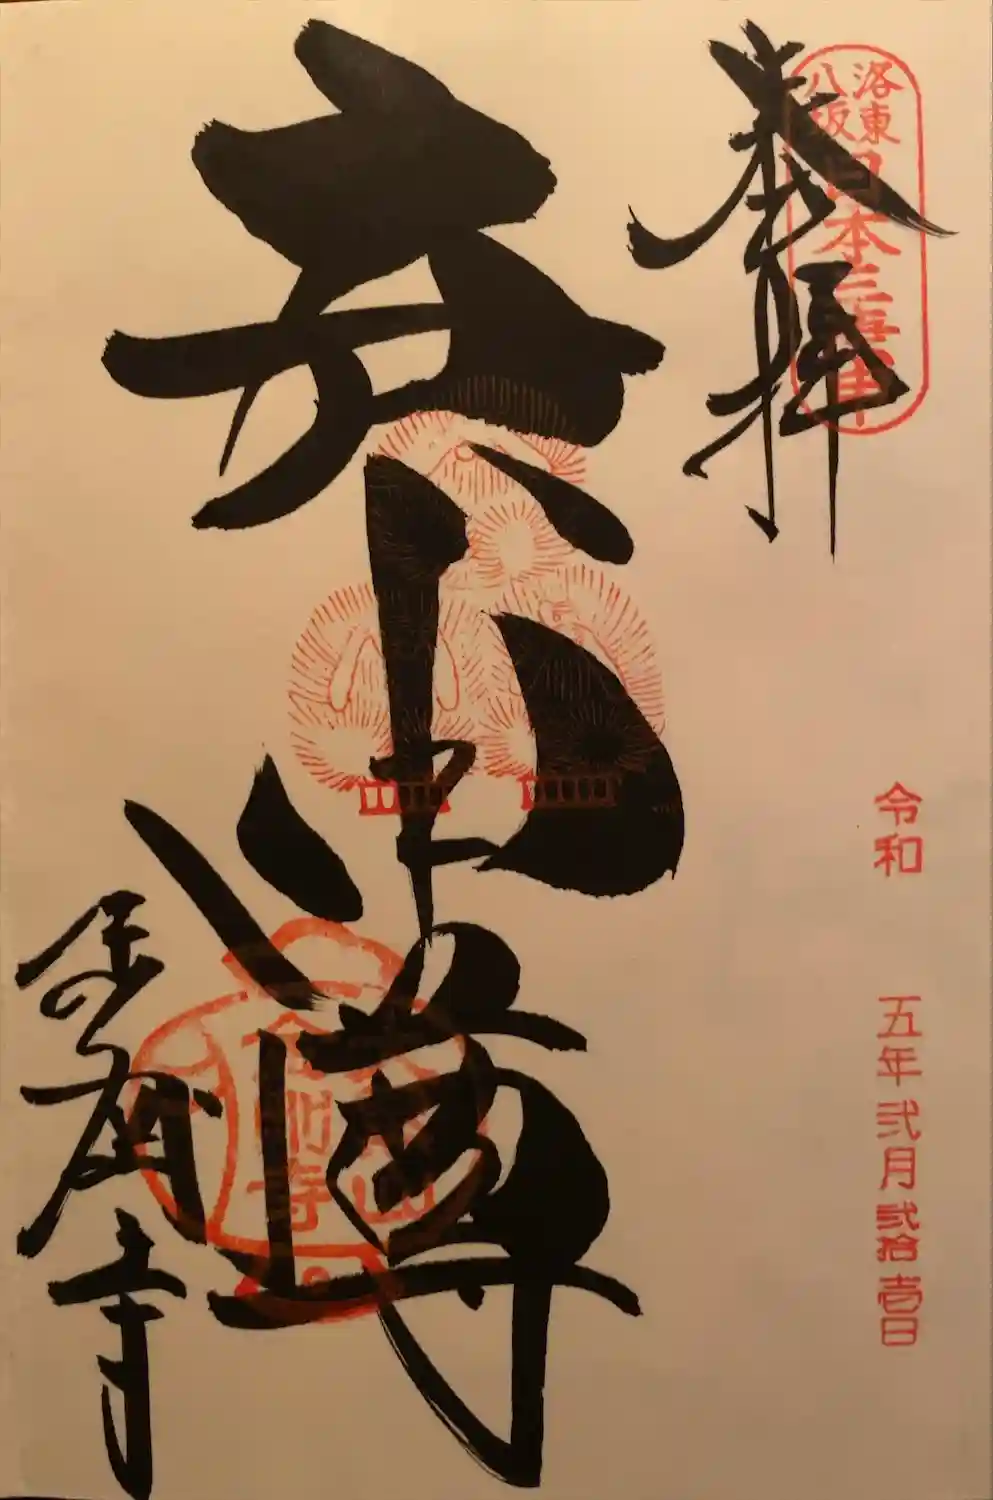 奉拝
洛東
八坂
日本三庚申
庚申尊
金剛寺
金剛寺
令和 五年弐月弐拾壱日